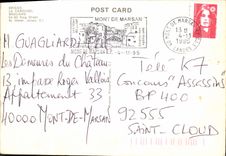 POST CARD
MONT DE MARSAN
13 H
1990
M GUAGLIARDI
Les Demeures du Château
13, impasse Roger Vallois
Appartement 33
40000 MONT-DE-MARSAN
Télé K7
Concours "Assassins"
BP 400
92555
SAINT-CLOUD